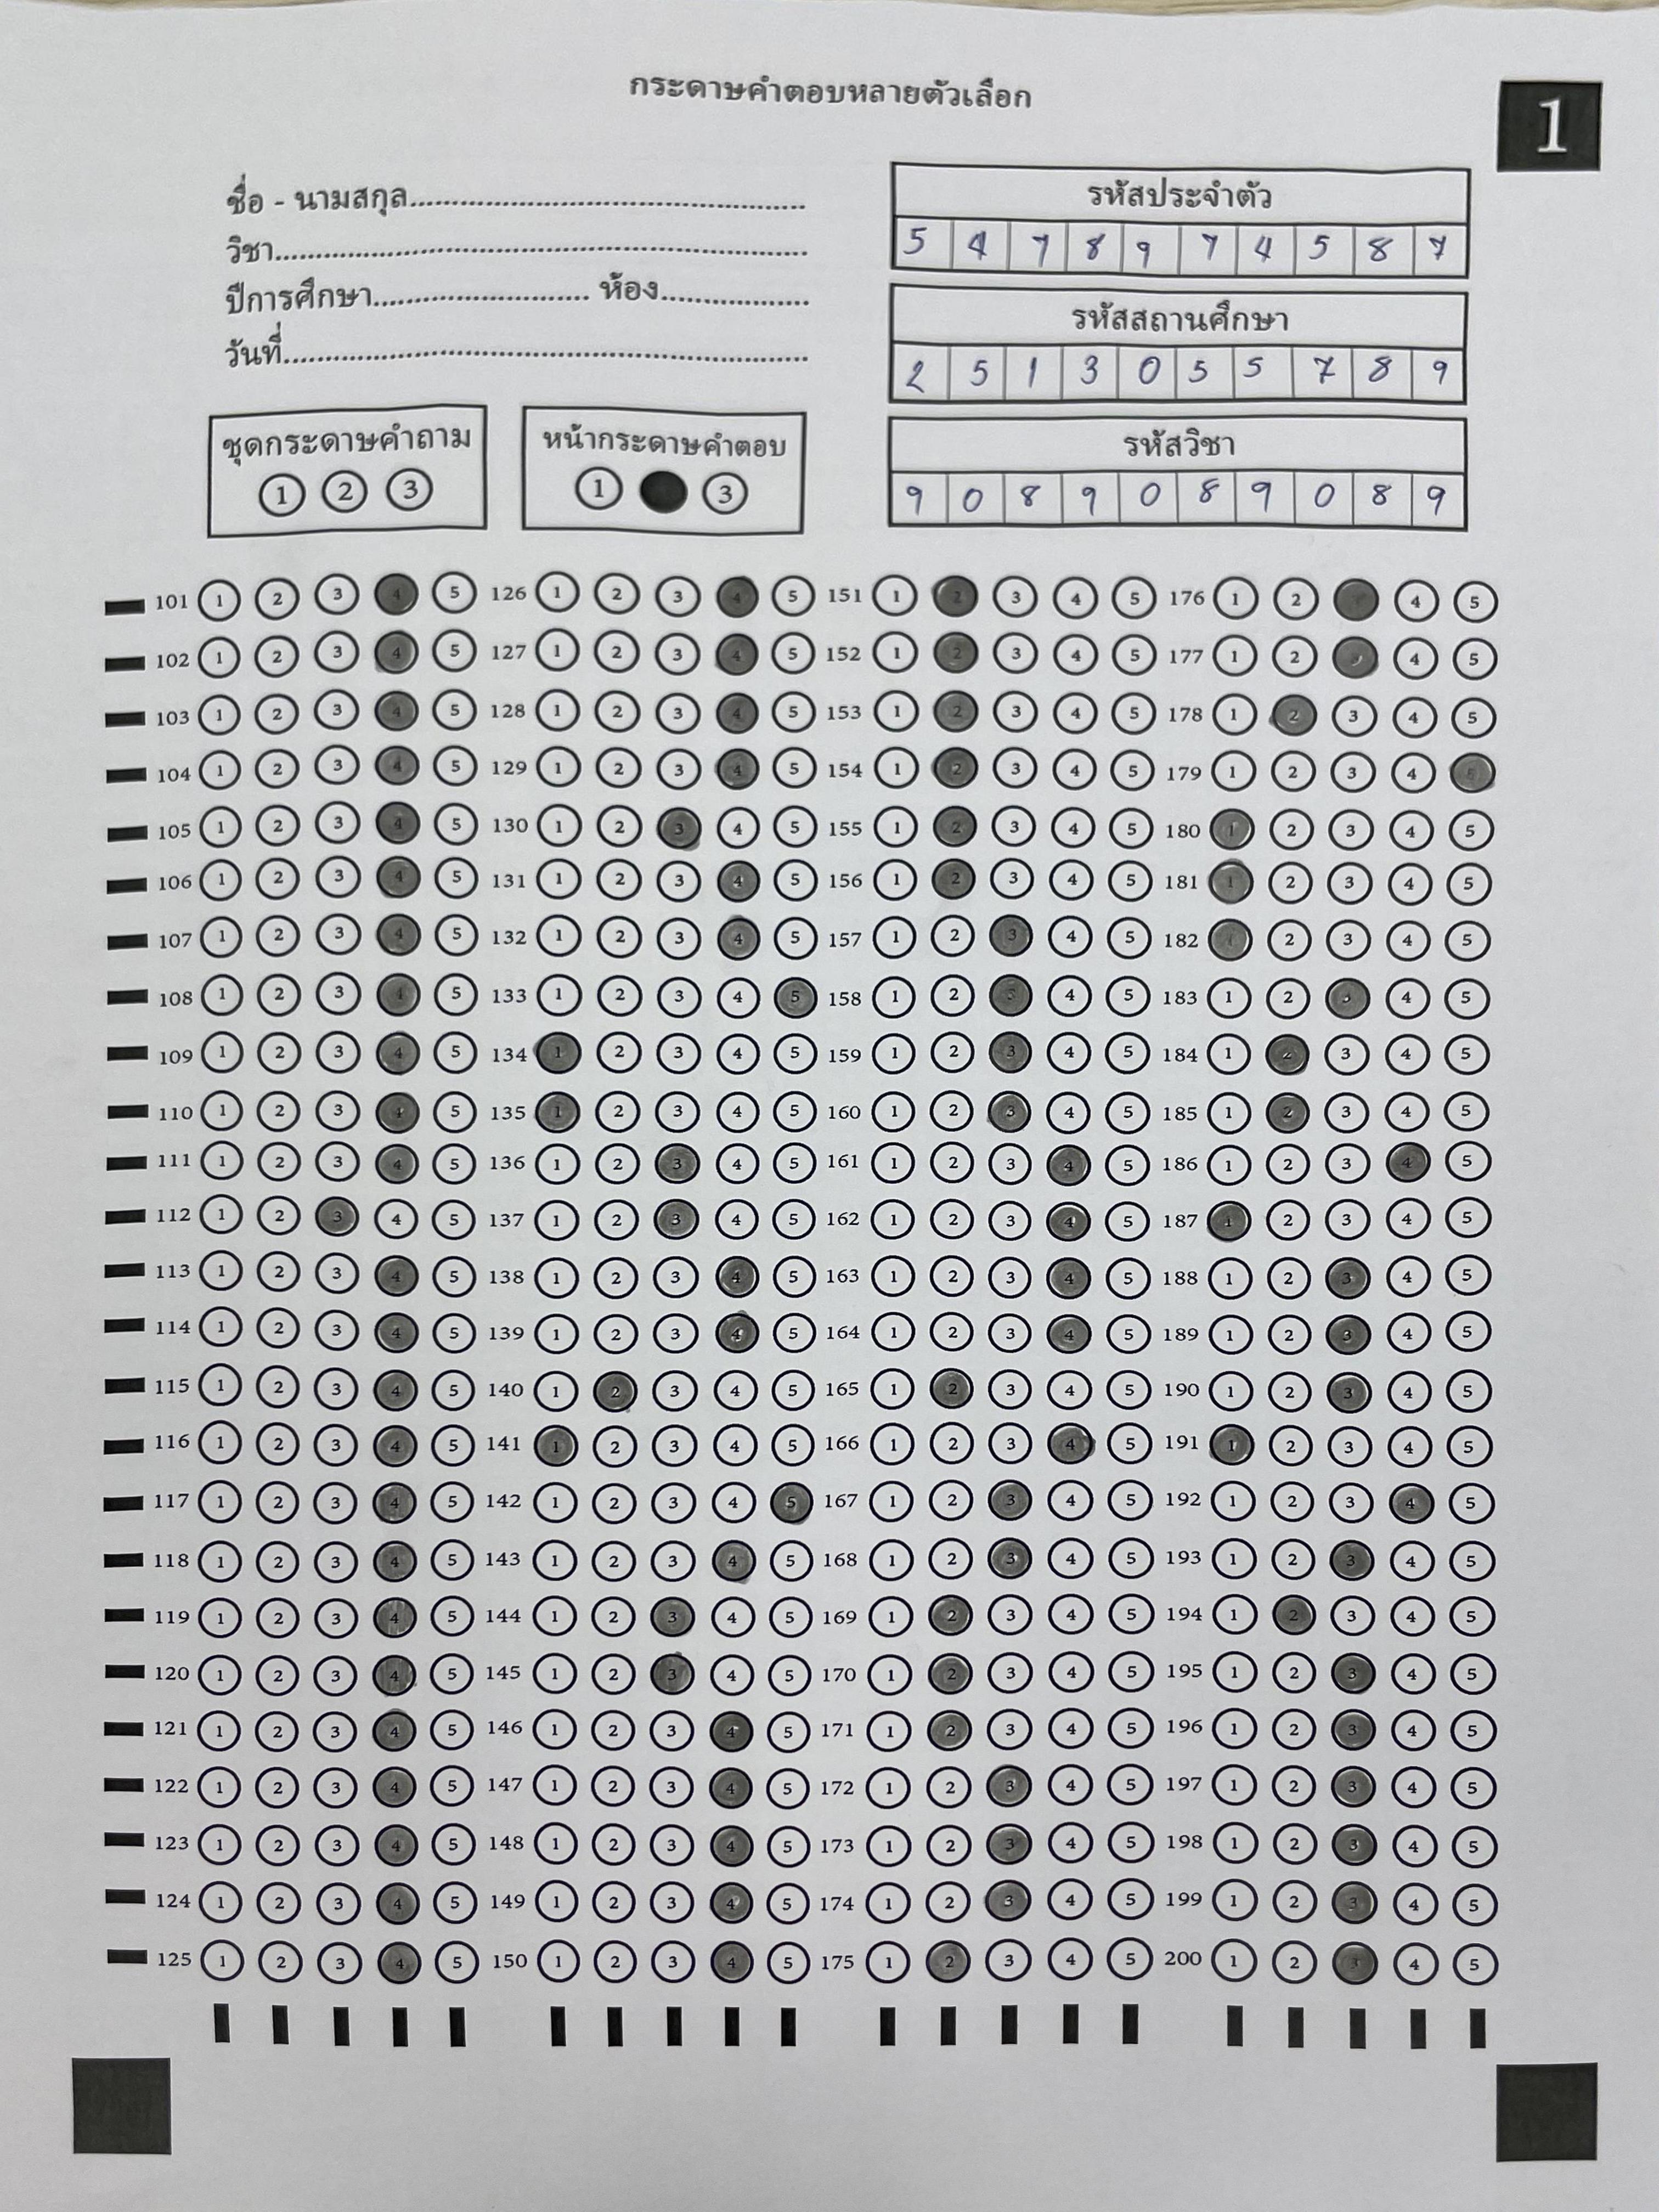 กระดาษคำตอบหลายตัวเลือก
1
ชื่อ - นามสกุล
วิชา
ปีการศึกษา ห้อง
วันที่
รหัสประจำตัว
5 4 7 8 9 7 4 5 8 7
รหัสสถานศึกษา
2 5 1 3 0 5 5 7 8 9
รหัสวิชา
9 0 8 9 0 8 9 0 8 9
ชุดกระดาษคำถาม
1 2 3
หน้ากระดาษคำตอบ
1 3
101 1 2 3 4 5 126 1 2 3 4 5 151 1 2 3 4 5 176 1 2 4 5
102 1 2 3 4 5 127 1 2 3 4 5 152 1 2 3 4 5 177 1 2 3 4 5
103 1 2 3 4 5 128 1 2 3 4 5 153 1 2 3 4 5 178 1 2 3 4 5
104 1 2 3 4 5 129 1 2 3 4 5 154 1 2 3 4 5 179 1 2 3 4 5
105 1 2 3 4 5 130 1 2 3 4 5 155 1 2 3 4 5 180 1 2 3 4 5
106 1 2 3 4 5 131 1 2 3 4 5 156 1 2 3 4 5 181 1 2 3 4 5
107 1 2 3 4 5 132 1 2 3 4 5 157 1 2 3 4 5 182 1 2 3 4 5
108 1 2 3 4 5 133 1 2 3 4 5 158 1 2 3 4 5 183 1 2 3 4 5
109 1 2 3 4 5 134 1 2 3 4 5 159 1 2 3 4 5 184 1 2 3 4 5
110 1 2 3 4 5 135 1 2 3 4 5 160 1 2 3 4 5 185 1 2 3 4 5
111 1 2 3 4 5 136 1 2 3 4 5 161 1 2 3 4 5 186 1 2 3 4 5
112 1 2 3 4 5 137 1 2 3 4 5 162 1 2 3 4 5 187 1 2 3 4 5
113 1 2 3 4 5 138 1 2 3 4 5 163 1 2 3 4 5 188 1 2 3 4 5
114 1 2 3 4 5 139 1 2 3 4 5 164 1 2 3 4 5 189 1 2 3 4 5
115 1 2 3 4 5 140 1 2 3 4 5 165 1 2 3 4 5 190 1 2 3 4 5
116 1 2 3 4 5 141 1 2 3 4 5 166 1 2 3 4 5 191 1 2 3 4 5
117 1 2 3 4 5 142 1 2 3 4 5 167 1 2 3 4 5 192 1 2 3 4 5
118 1 2 3 4 5 143 1 2 3 4 5 168 1 2 3 4 5 193 1 2 3 4 5
119 1 2 3 4 5 144 1 2 3 4 5 169 1 2 3 4 5 194 1 2 3 4 5
120 1 2 3 4 5 145 1 2 3 4 5 170 1 2 3 4 5 195 1 2 3 4 5
121 1 2 3 4 5 146 1 2 3 4 5 171 1 2 3 4 5 196 1 2 3 4 5
122 1 2 3 4 5 147 1 2 3 4 5 172 1 2 3 4 5 197 1 2 3 4 5
123 1 2 3 4 5 148 1 2 3 4 5 173 1 2 3 4 5 198 1 2 3 4 5
124 1 2 3 4 5 149 1 2 3 4 5 174 1 2 3 4 5 199 1 2 3 4 5
125 1 2 3 4 5 150 1 2 3 4 5 175 1 2 3 4 5 200 1 2 3 4 5